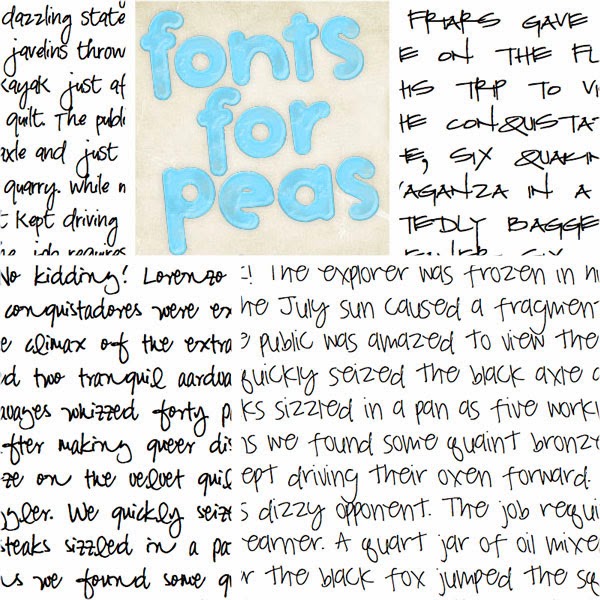 dazzling state
javelins throw
kayak just af
quilt. The publi
axle and just
quarry. While
Kept driving
the job requires
fonts
for
peas
FRIARS GAVE
ON THE FL
TRIP TO
CONQUISTA
SIX QUAKIN
AGANZA IN A
TEDLY BAGGE
No kidding! Lorenzo
conquistadores were ex
climax of the extra
two tranquil aardva
wages whizzed forty p
after making queer di
ze on the velvet quil
ggler. We quickly seiz
steaks sizzled in a pa
us we found some q
The explorer was frozen in hi
he July sun caused a fragmen
public was amazed to view the
quickly seized the black axle
ks sizzled in a pan as five worki
we found some quaint bronze
ept driving their oxen forward.
s dizzy opponent. The job requi
earner. A quart jar of oil mixe
r the black fox jumped the sq